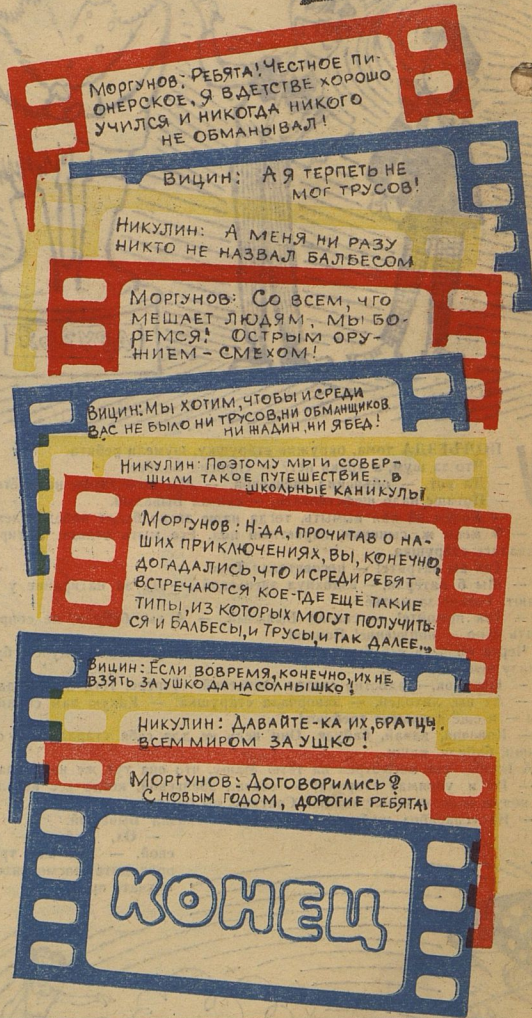 Моргунов: Ребята! Честное пи-
онерское, я в детстве хорошо
учился и никогда никого
не обманывал!
Вицин: А я терпеть не
мог трусов!
Никулин: А меня ни разу
никто не назвал балбесом
Моргунов: Со всем, что
мешает людям, мы бо-
ремся! Острым ору-
жием – смехом!
Вицин: Мы хотим, чтобы и среди
вас не было ни трусов, ни обманщиков
ни жадин, ни ябед!
Никулин: Поэтому мы и совер-
шили такое путешествие... в
школьные каникулы
Моргунов: Н-да, прочитав о на-
ших приключениях, вы, конечно,
догадались, что и среди ребят
встречаются кое-где ещё такие
типы, из которых могут получить-
ся и Балбесы, и Трусы, и так далее...
Вицин: Если вовремя, конечно, их не
взять за ушко да на солнышко!
Никулин: Давайте-ка их, братцы,
всем миром за ушко!
Моргунов: Договорились?
С новым годом, дорогие ребята!
КОНЕЦ